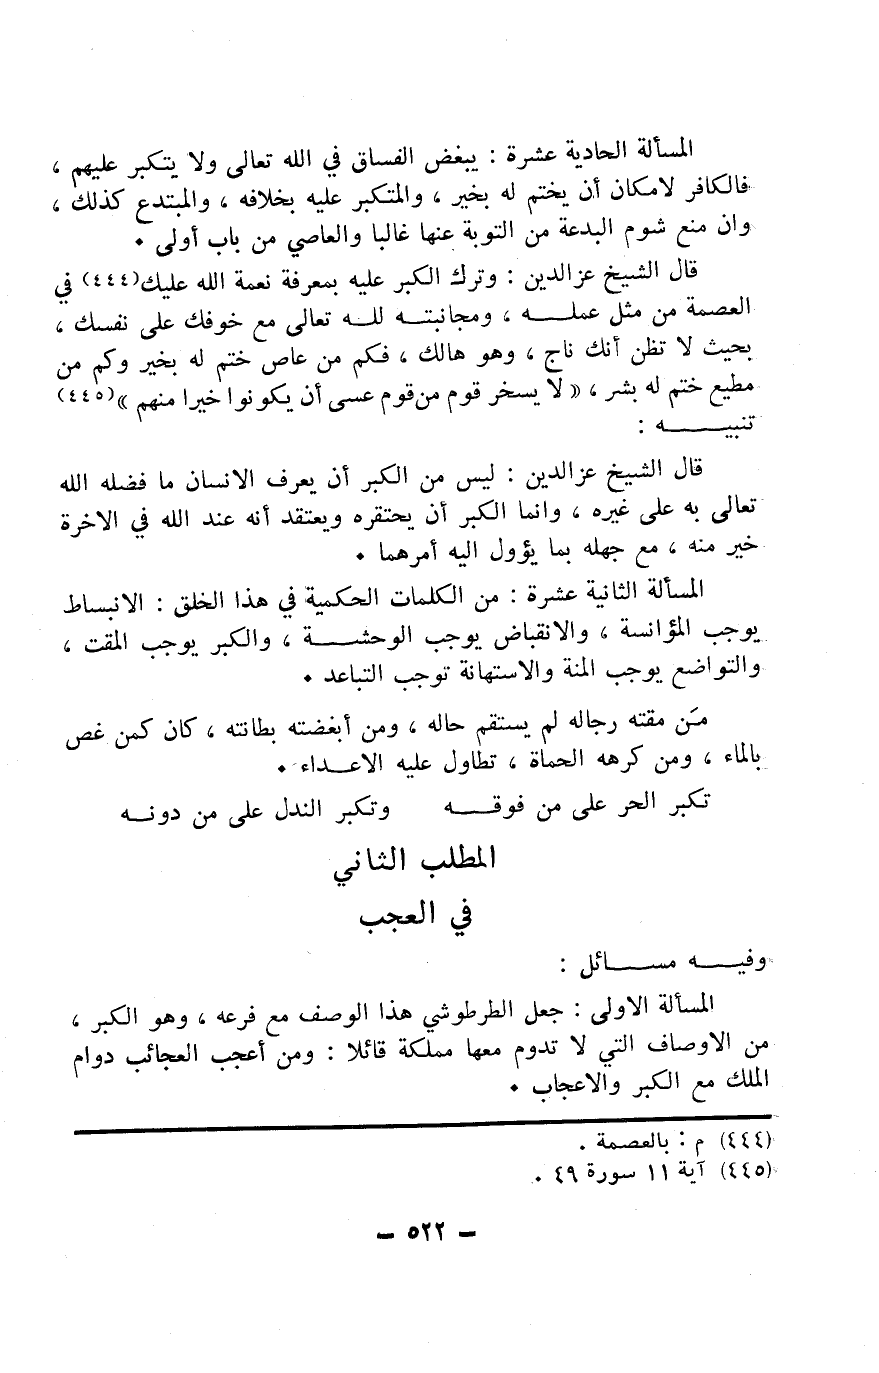 المسألة الحادية عشرة : يبغض الفساق في الله تعالى ولا يتكبر عليهم ،
فالكافر لامكان أن يختم له بخير ، والمتكبر عليه بخلافه ، والمبتدع كذلك ،
وان منع شوم البدعة من التوبة عنها غالبا والعاصي من باب أولى .
قال الشيخ عزالدين : وترك الكبر عليه بمعرفة نعمة الله عليك(٤٤٤) في
العصمة من مثل عمله ، ومجانبته لله تعالى مع خوفك على نفسك ،
بحيث لا تظن أنك ناج ، وهو هالك ، فكم من عاص ختم له بخير وكم من
مطيع ختم له بشر ، « لا يسخر قوم من قوم عسى أن يكونوا خيرا منهم »(٤٤٥)
تنبيه :
قال الشيخ عزالدين : ليس من الكبر أن يعرف الانسان ما فضله الله
تعالى به على غيره ، وانما الكبر أن يحتقره ويعتقد أنه عند الله في الاخرة
خير منه ، مع جهله بما يؤول اليه أمرهما .
المسألة الثانية عشرة : من الكلمات الحكمية في هذا الخلق : الانبساط
يوجب المؤانسة ، والانقباض يوجب الوحشة ، والكبر يوجب المقت ،
والتواضع يوجب المنة والاستهانة توجب التباعد .
مَن مقته رجاله لم يستقم حاله ، ومن أبغضته بطانته ، كان كمن غص
بالماء ، ومن كرهه الحماة ، تطاول عليه الاعداء .
تكبر الحر على من فوقه وتكبر الندل على من دونه
المطلب الثاني
في العجب
وفيه مسائل :
المسألة الاولى : جعل الطرطوشي هذا الوصف مع فرعه ، وهو الكبر ،
من الاوصاف التي لا تدوم معها مملكة قائلا : ومن أعجب العجائب دوام
الملك مع الكبر والاعجاب .
(٤٤٤) م : بالعصمة .
(٤٤٥) آية ١١ سورة ٤٩ .
– ٥٢٢ –